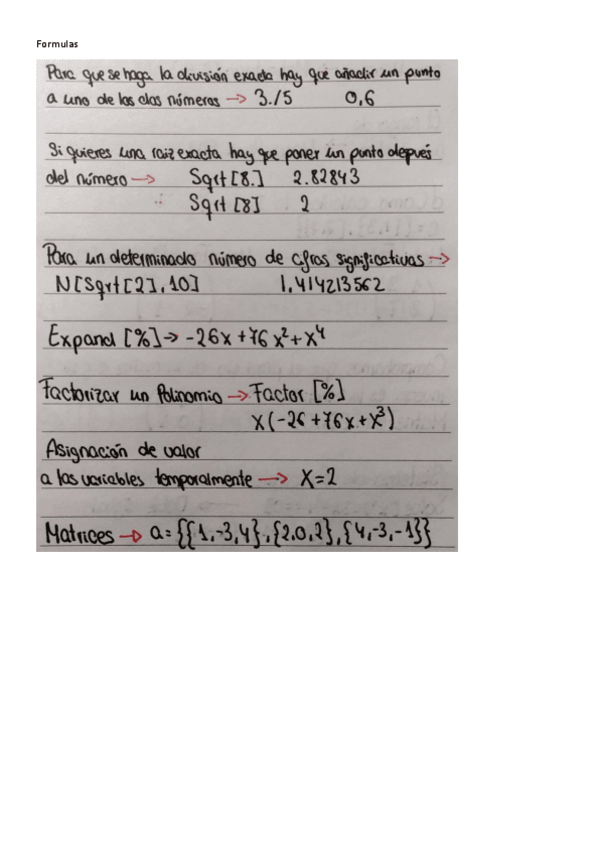 Formulas
Para que se haga la división exacta hay que añadir un punto
a uno de los dos números → 3./5 0,6
Si quieres una raiz exacta hay que poner un punto depués
del número → Sqrt [8.] 2.82843
Sqrt [8] 2
Para un determinado número de cifras significativas →
N[Sqrt[2],10] 1,414213562
Expand [%] → -26x+76x²+x⁴
Factorizar un Polinomio → Factor [%]
x(-26+76x+x³)
Asignación de valor
a las variables temporalmente → X=2
Matrices → a={{1,-3,4},{2,0,2},{4,-3,-1}}